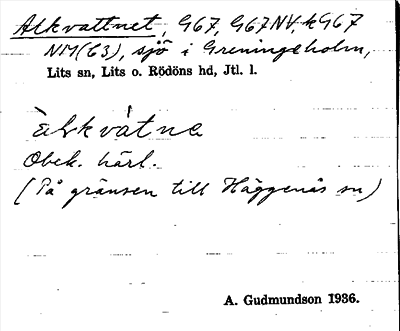 Alkvattnet, G67, G67NV, kG67
NM(63), sjö i Greningeholm,
Lits sn, Lits o. Rödöns hd, Jtl. l.
àlkvátna
Obek. härl.
(På gränsen till Häggenås sn)
A. Gudmundson 1936.